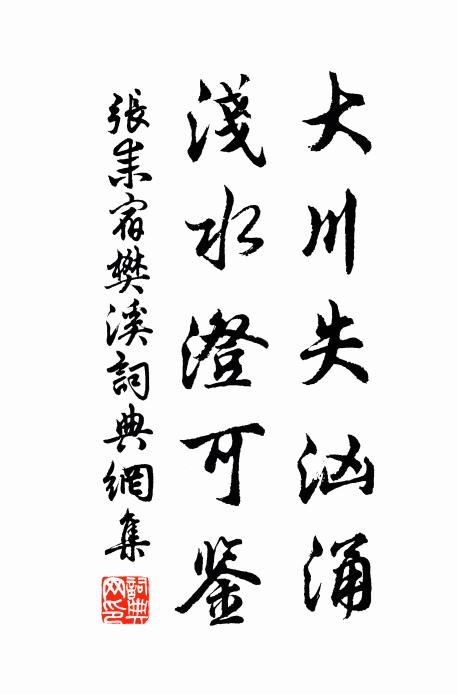 大川失洶涌
淺水澄可鉴
張耒宿樊溪詞典網集
詞典網印